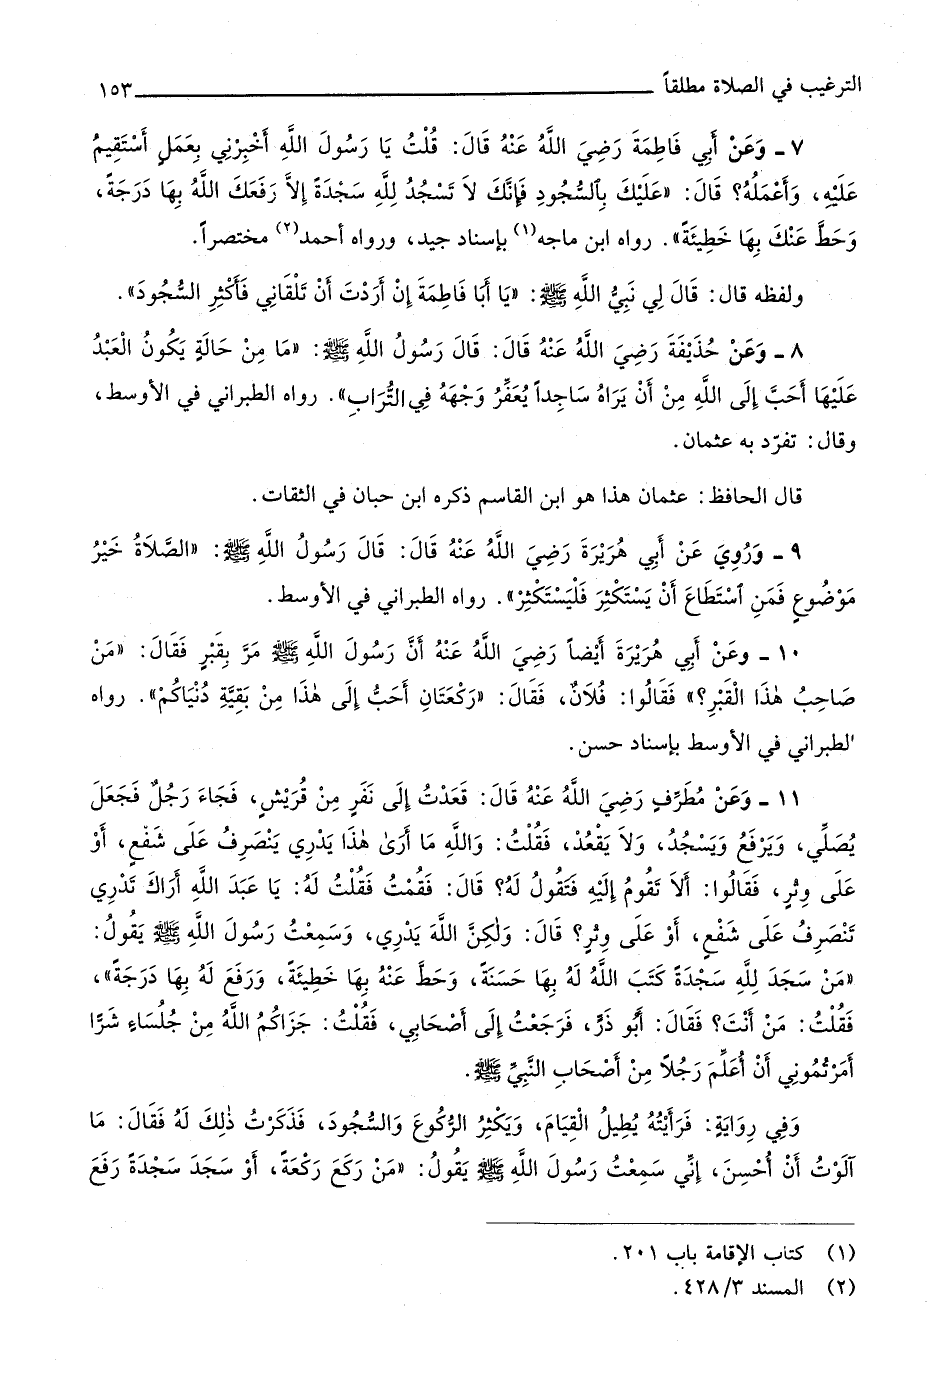 الترغيب في الصلاة مطلقاً ١٥٣
٧ ـ وَعَنْ أَبِي فَاطِمَةَ رَضِيَ اللَّهُ عَنْهُ قَالَ: قُلْتُ يَا رَسُولَ اللَّهِ أَخْبِرْنِي بِعَمَلٍ أَسْتَقِيمُ
عَلَيْهِ، وَأَعْمَلُهُ؟ قَالَ: «عَلَيْكَ بِٱلسُّجُودِ فَإِنَّكَ لاَ تَسْجُدُ لِلَّهِ سَجْدَةً إِلاَّ رَفَعَكَ اللَّهُ بِهَا دَرَجَةً،
وَحَطَّ عَنْكَ بِهَا خَطِيئَةً». رواه ابن ماجه(١) بإسناد جيد، ورواه أحمد(٢) مختصراً.
ولفظه قال: قَالَ لِي نَبِيُّ اللَّهِ ﷺ: «يَا أَبَا فَاطِمَةَ إِنْ أَرَدْتَ أَنْ تَلْقَانِي فَأَكْثِرِ السُّجُودَ».
٨ ـ وَعَنْ حُذَيْفَةَ رَضِيَ اللَّهُ عَنْهُ قَالَ: قَالَ رَسُولُ اللَّهِ ﷺ: «مَا مِنْ حَالَةٍ يَكُونُ الْعَبْدُ
عَلَيْهَا أَحَبَّ إِلَى اللَّهِ مِنْ أَنْ يَرَاهُ سَاجِداً يُعَفِّرُ وَجْهَهُ فِي التُّرَابِ». رواه الطبراني في الأوسط،
وقال: تفرّد به عثمان.
قال الحافظ: عثمان هذا هو ابن القاسم ذكره ابن حبان في الثقات.
٩ ـ وَرُوِيَ عَنْ أَبِي هُرَيْرَةَ رَضِيَ اللَّهُ عَنْهُ قَالَ: قَالَ رَسُولُ اللَّهِ ﷺ: «الصَّلَاةُ خَيْرُ
مَوْضُوعٍ فَمَنِ ٱسْتَطَاعَ أَنْ يَسْتَكْثِرَ فَلْيَسْتَكْثِرْ». رواه الطبراني في الأوسط.
١٠ ـ وعَنْ أَبِي هُرَيْرَةَ أَيْضاً رَضِيَ اللَّهُ عَنْهُ أَنَّ رَسُولَ اللَّهِ ﷺ مَرَّ بِقَبْرٍ فَقَالَ: «مَنْ
صَاحِبُ هٰذَا الْقَبْرِ؟» فَقَالُوا: فُلَانٌ، فَقَالَ: «رَكْعَتَانِ أَحَبُّ إِلَى هٰذَا مِنْ بَقِيَّةِ دُنْيَاكُمْ». رواه
الطبراني في الأوسط بإسناد حسن.
١١ ـ وَعَنْ مُطَرِّفٍ رَضِيَ اللَّهُ عَنْهُ قَالَ: قَعَدْتُ إِلَى نَفَرٍ مِنْ قُرَيْشٍ، فَجَاءَ رَجُلٌ فَجَعَلَ
يُصَلِّي، وَيَرْفَعُ وَيَسْجُدُ، وَلاَ يَقْعُدْ، فَقُلْتُ: وَاللَّهِ مَا أَرَىٰ هٰذَا يَدْرِي يَنْصَرِفُ عَلَى شَفْعٍ، أَوْ
عَلَى وِتْرٍ، فَقَالُوا: أَلاَ تَقُومُ إِلَيْهِ فَتَقُولُ لَهُ؟ قَالَ: فَقُمْتُ فَقُلْتُ لَهُ: يَا عَبَدَ اللَّهِ أَرَاكَ تَدْرِي
تَنْصَرِفُ عَلَى شَفْعٍ، أَوْ عَلَى وِتْرٍ؟ قَالَ: وَلٰكِنَّ اللَّهَ يَدْرِي، وَسَمِعْتُ رَسُولَ اللَّهِ ﷺ يَقُولُ:
«مَنْ سَجَدَ لِلَّهِ سَجْدَةً كَتَبَ اللَّهُ لَهُ بِهَا حَسَنَةً، وَحَطَّ عَنْهُ بِهَا خَطِيئَةً، وَرَفَعَ لَهُ بِهَا دَرَجَةً»،
فَقُلْتُ: مَنْ أَنْتَ؟ فَقَالَ: أَبُو ذَرٍّ، فَرَجَعْتُ إِلَى أَصْحَابِي، فَقُلْتُ: جَزَاكُمُ اللَّهُ مِنْ جُلَسَاءٍ شَرًّا
أَمَرْتُمُونِي أَنْ أُعَلِّمَ رَجُلاً مِنْ أَصْحَابِ النَّبِيِّ ﷺ.
وَفِي رِوَايَةٍ: فَرَأَيْتُهُ يُطِيلُ الْقِيَامَ، وَيَكْثِرُ الرُّكُوعَ وَالسُّجُودَ، فَذَكَرْتُ ذٰلِكَ لَهُ فَقَالَ: مَا
آلَوْتُ أَنْ أُحْسِنَ، إِنِّي سَمِعْتُ رَسُولَ اللَّهِ ﷺ يَقُولُ: «مَنْ رَكَعَ رَكْعَةً، أَوْ سَجَدَ سَجْدَةً رَفَعَ
(١) كتاب الإقامة باب ٢٠١.
(٢) المسند ٣/ ٤٢٨.